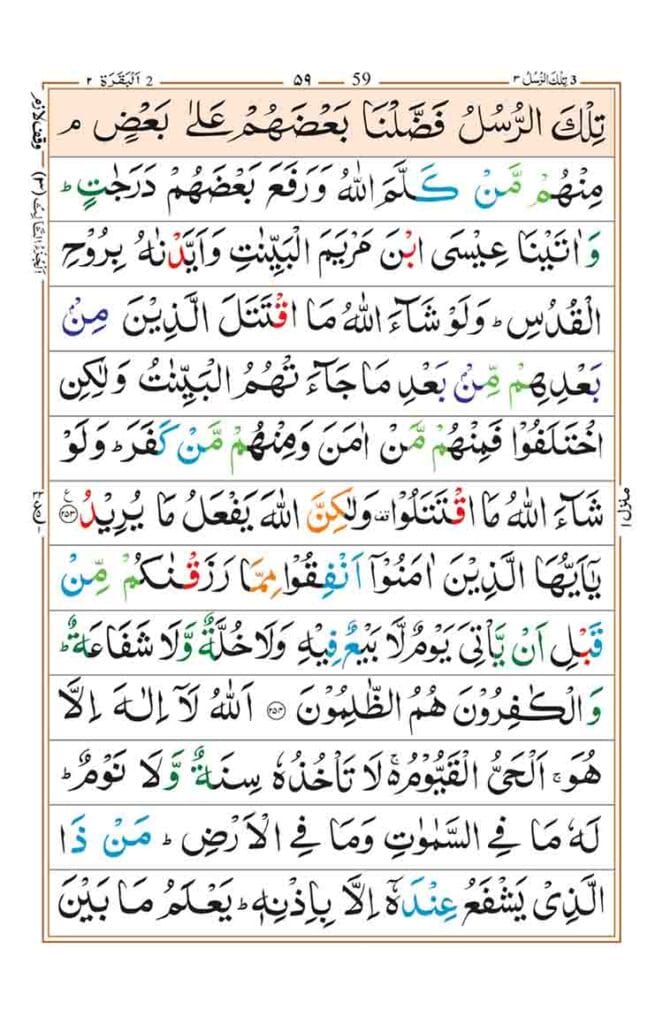 3 تِلْكَ الرُّسُلُ ٣ 59 ٥٩ 2 اَلْبَقَرَة ٢
تِلْكَ الرُّسُلُ فَضَّلْنَا بَعْضَهُمْ عَلٰى بَعْضٍ ۘ
مِنْهُمْ مَّنْ كَلَّمَ اللّٰهُ وَرَفَعَ بَعْضَهُمْ دَرَجٰتٍ ؕ
وَاٰتَيْنَا عِيْسَى ابْنَ مَرْيَمَ الْبَيِّنٰتِ وَاَيَّدْنٰهُ بِرُوْحِ
الْقُدُسِ ؕ وَلَوْ شَآءَ اللّٰهُ مَا اقْتَتَلَ الَّذِيْنَ مِنْ
بَعْدِهِمْ مِّنْ بَعْدِ مَا جَآءَتْهُمُ الْبَيِّنٰتُ وَلٰكِنِ
اخْتَلَفُوْا فَمِنْهُمْ مَّنْ اٰمَنَ وَمِنْهُمْ مَّنْ كَفَرَ ؕ وَلَوْ
شَآءَ اللّٰهُ مَا اقْتَتَلُوْا ۟ وَلٰكِنَّ اللّٰهَ يَفْعَلُ مَا يُرِيْدُ ٢٥٣ ع
يٰۤاَيُّهَا الَّذِيْنَ اٰمَنُوْۤا اَنْفِقُوْا مِمَّا رَزَقْنٰكُمْ مِّنْ
قَبْلِ اَنْ يَّاْتِيَ يَوْمٌ لَّا بَيْعٌ فِيْهِ وَلَا خُلَّةٌ وَّلَا شَفَاعَةٌ ؕ
وَالْكٰفِرُوْنَ هُمُ الظّٰلِمُوْنَ ٢٥٤ اَللّٰهُ لَاۤ اِلٰهَ اِلَّا
هُوَ ۚ اَلْحَيُّ الْقَيُّوْمُ ۚ لَا تَاْخُذُهٗ سِنَةٌ وَّلَا نَوْمٌ ؕ
لَهٗ مَا فِي السَّمٰوٰتِ وَمَا فِي الْاَرْضِ ؕ مَنْ ذَا
الَّذِيْ يَشْفَعُ عِنْدَهٗۤ اِلَّا بِاِذْنِهٖ ؕ يَعْلَمُ مَا بَيْنَ
وقف لازم
(٣) اَلْجُزْءُ الثَّالِثُ
منزل ١